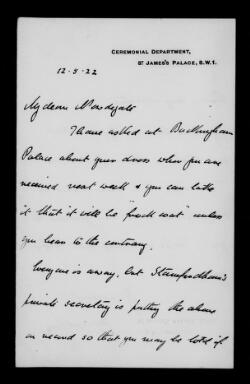 CEREMONIAL DEPARTMENT,
ST JAMES'S PALACE, S.W.1.
12·5·22
My dear
I have asked at Buckingham
Palace about your dress when you are
received next week & you can take
it that it will be "frock coat" unless
you hear to the contrary.
Everyone is away, but Stamfordham's
private secretary is putting the above
on record so that you may be told if